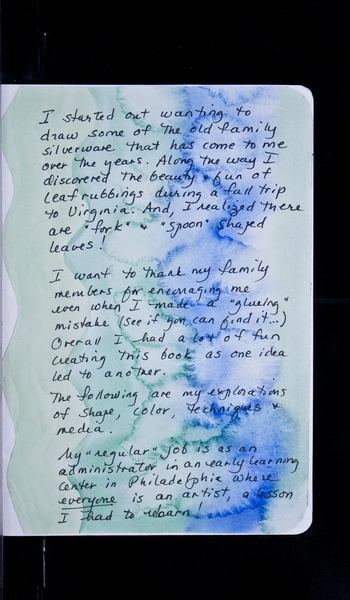 I started out wanting to
draw some of the old family
silverware that has come to me
over the years. Along the way I
discovered the beauty & fun of
leaf rubbings during a fall trip
to Virginia. And, I realized there
are "fork" & "spoon" shaped
leaves!
I want to thank my family
members for encouraging me
even when I made a "glueing"
mistake (see if you can find it...)
Overall I had a lot of fun
creating this book as one idea
led to another.
The following are my explorations
of shape, color, techniques &
media.
My "regular" job is as an
administrator in an early learning
center in Philadelphia where
everyone is an artist, a lesson
I had to relearn!